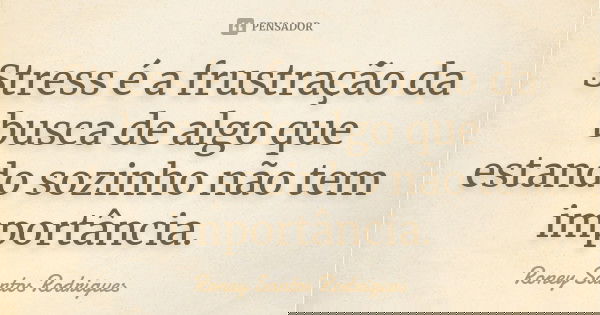 PENSADOR
Stress é a frustração da
busca de algo que
estando sozinho não tem
importância.
Roney Santos Rodrigues